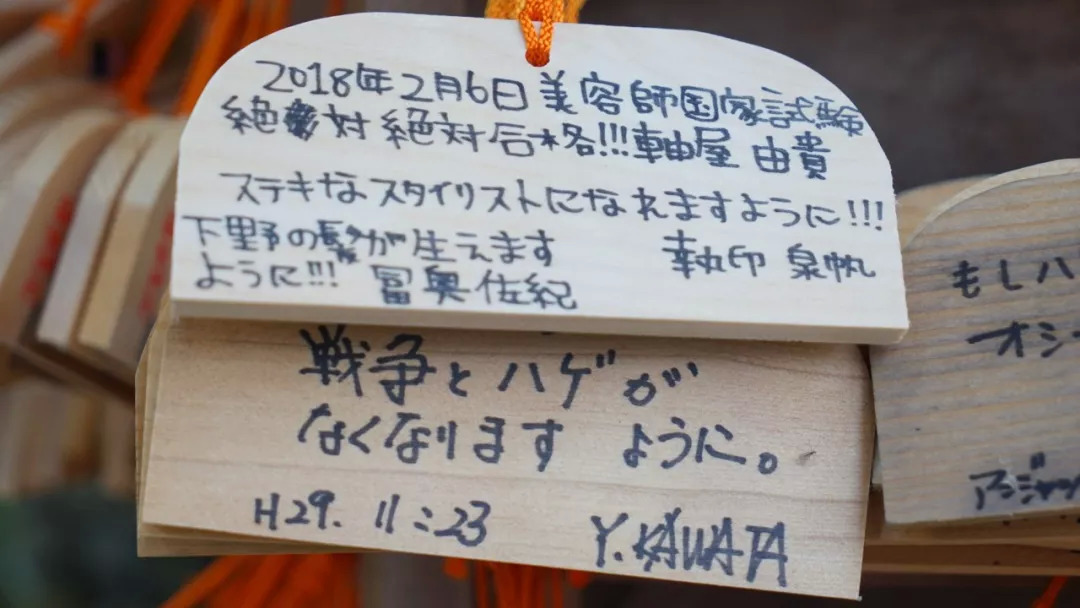 2018年2月6日美容師国家試験
絶対絶対合格!!!軸屋 由貴
ステキなスタイリストになれますように!!!
下野の髪が生えます
ように!!! 冨奥佐紀
執印 泉帆
戦争とハゲが
なくなります ように。
H29. 11:23
Y.KAWATA
もしハ
オシ
アンジャッ